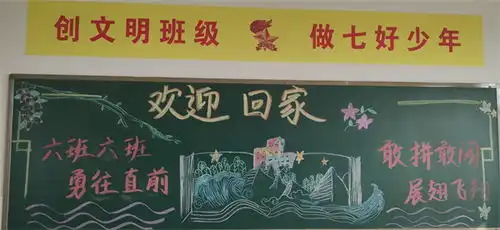 创文明班级 做七好少年
欢迎回家
六班六班
勇往直前
敢拼敢闯
展翅飞翔